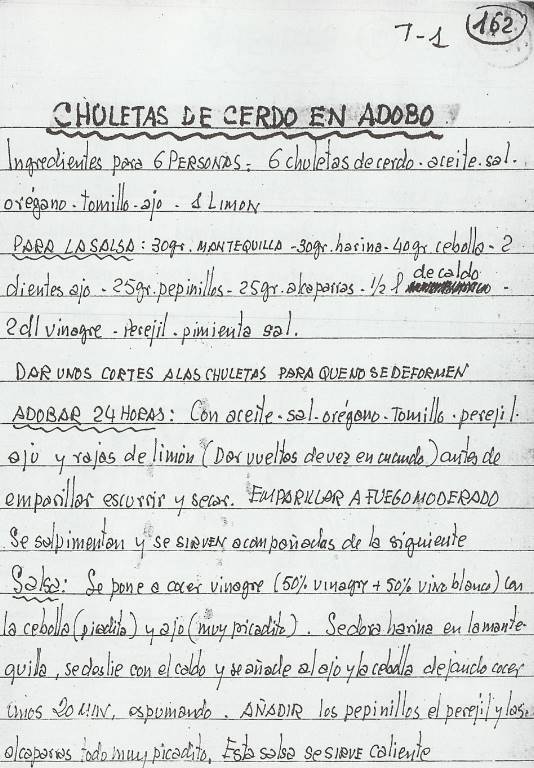 7-1 162
CHULETAS DE CERDO EN ADOBO
Ingredientes para 6 PERSONAS: 6 chuletas de cerdo - aceite - sal -
orégano - tomillo - ajo - 1 LIMON
PARA LA SALSA: 30gr. MANTEQUILLA - 30gr. harina - 40gr. cebolla - 2
dientes ajo - 25gr. pepinillos - 25gr. alcaparras - 1/2 l de caldo -
2 dl vinagre - Perejil - pimienta sal.
DAR UNOS CORTES A LAS CHULETAS PARA QUE NO SE DEFORMEN
ADOBAR 24 HORAS: Con aceite - sal - orégano - Tomillo - perejil -
ajo y rajas de limón (Dar vueltas de vez en cuando) antes de
emparillar escurrir y secar. EMPARILLAR A FUEGO MODERADO
Se salpimentan y se SIRVEN acompañadas de la siguiente
Salsa: Se pone a cocer vinagre (50% vinagre + 50% vino blanco) con
la cebolla (picadita) y ajo (muy picadito). Se dora harina en la mante-
quilla, se deslie con el caldo y se añade al ajo y la cebolla dejando cocer
unos 20 MIN, espumando. AÑADIR los pepinillos el perejil y las
alcaparras todo muy picadito. Esta salsa se SIRVE caliente